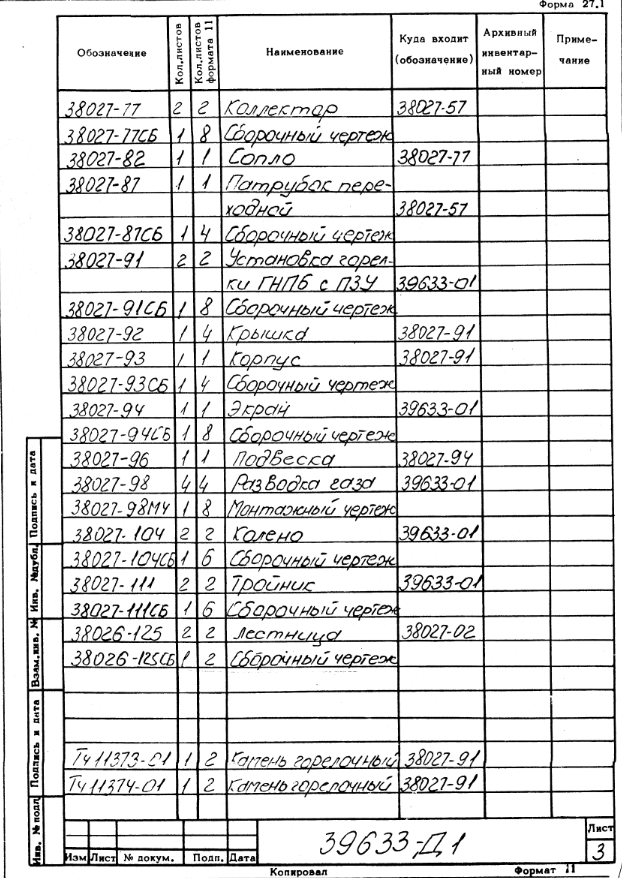 Форма 27.1
Обозначение Кол.листов Кол.листов формата 11 Наименование Куда входит (обозначение) Архивный инвентарный номер Примечание
38027-77 2 2 Коллектор 38027-57
38027-77СБ 1 8 Сборочный чертеж
38027-82 1 1 Сопло 38027-77
38027-87 1 1 Патрубок пере-
ходной 38027-57
38027-87СБ 1 4 Сборочный чертеж
38027-91 2 2 Установка горел-
ки ГНПБ с ПЗУ 39633-01
38027-91СБ 1 8 Сборочный чертеж
38027-92 1 4 Крышка 38027-91
38027-93 1 1 Корпус 38027-91
38027-93СБ 1 4 Сборочный чертеж
38027-94 1 1 Экран 39633-01
38027-94СБ 1 8 Сборочный чертеж
38027-96 1 1 Подвеска 38027-94
38027-98 4 4 Разводка газа 39633-01
38027-98МЧ 1 8 Монтажный чертеж
38027-104 2 2 Колено 39633-01
38027-104СБ 1 6 Сборочный чертеж
38027-111 2 2 Тройник 39633-01
38027-111СБ 1 6 Сборочный чертеж
38026-125 2 2 Лестница 38027-02
38026-125СБ 1 2 Сборочный чертеж
Тч11373-01 1 2 Камень горелочный 38027-91
Тч11374-01 1 2 Камень горелочный 38027-91
Инв. № подл. Подпись и дата Взам.инв. № Инв. №дубл. Подпись и дата
39633-Д1
Лист
3
Изм Лист № докум. Подп. Дата
Копировал Формат 11